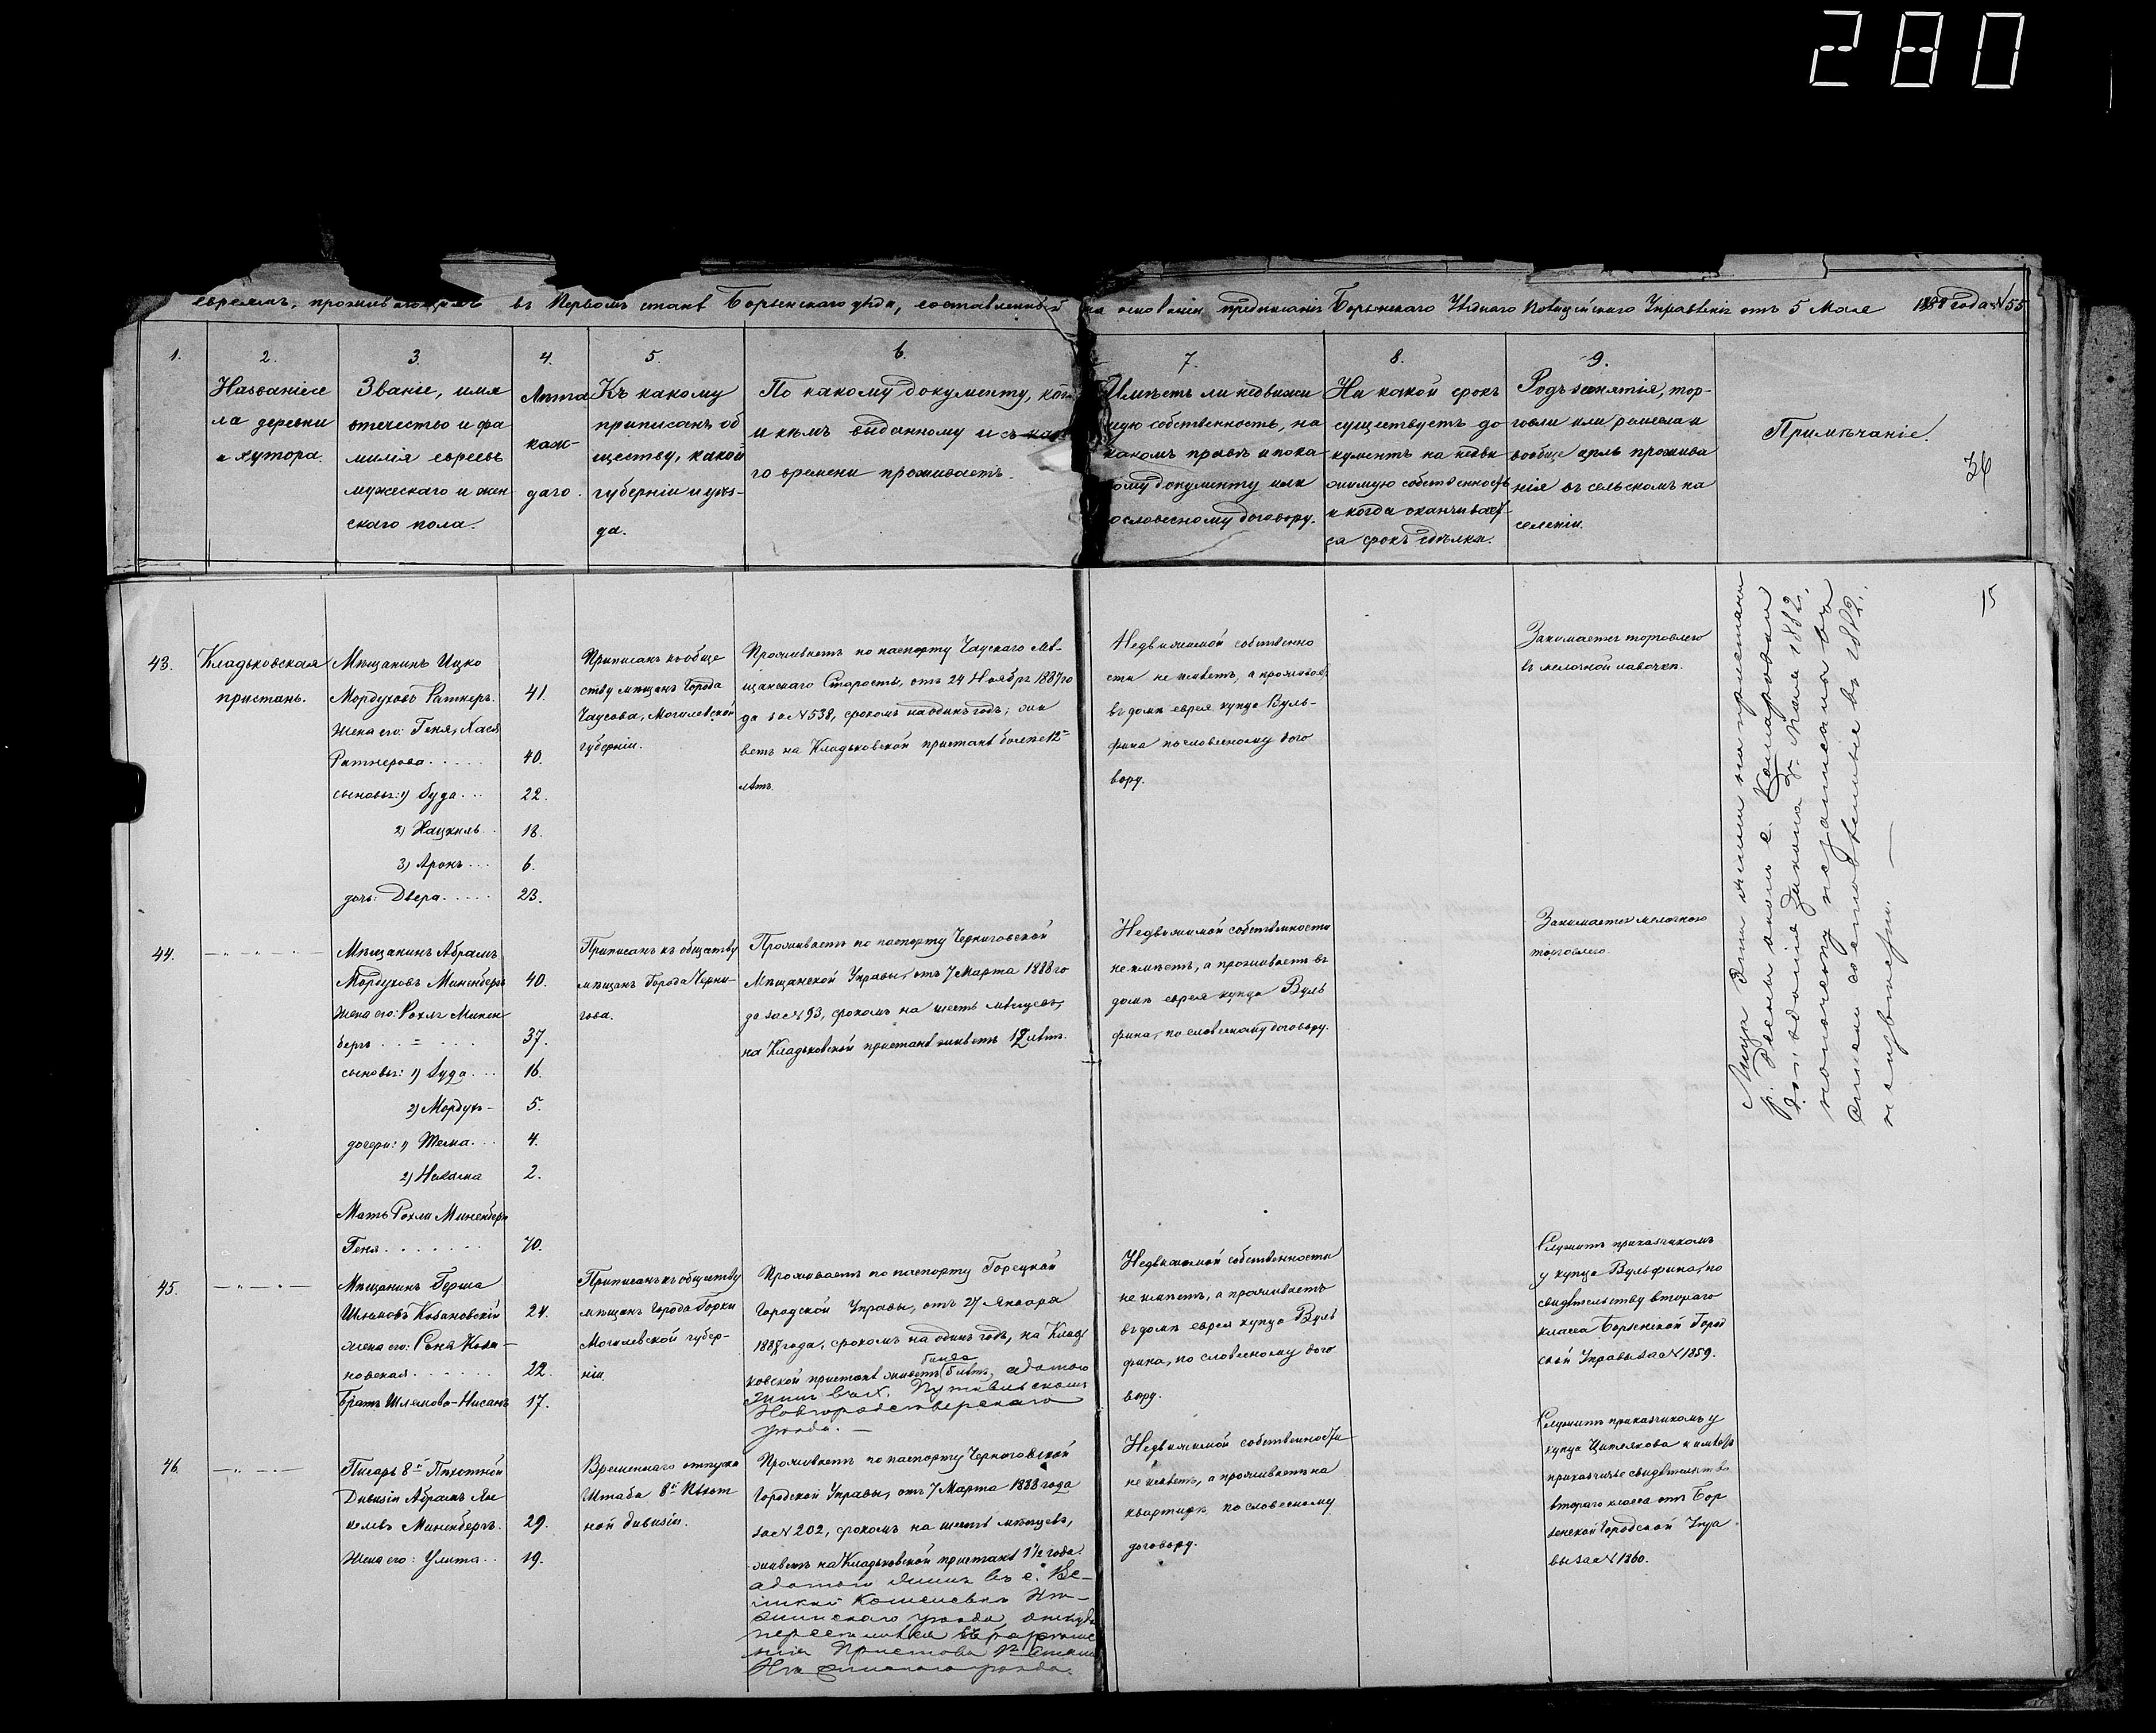 280
евреямъ, проживающимъ въ Первомъ станѣ Борзенскаго уѣзда, составленный на основаніи предписанія Борзенскаго Уѣзднаго Полицейскаго Управленія отъ 5 Мая 1888 года №55
1.
2.
Названіе се
ла деревни
и хутора.
3.
Званіе, имя
отечество и фа
милія евреевъ
мужескаго и жен
скаго пола.
4.
Лѣта
каж-
даго.
5.
Къ какому
приписанъ об
ществу, какой
губерніи и уѣз-
да.
6.
По какому документу, когда
и кѣмъ выданному и съ како
го времени проживаетъ.
7.
Имѣетъ ли недвижи
мую собственность, на
какомъ правѣ и по ка
кому документу или
по словесному договору.
8.
На какой срокъ
существуетъ до
кументъ на недви
жимую собственность
и когда оканчивает
ся срокъ сдѣлки.
9.
Родъ занятія, тор-
говли или ремесла и
вообще цѣль прожива
нія въ сельскомъ на
селеніи.
Примѣчаніе.
36
15
43.
Кладьковская
пристань.
Мѣщанинъ Ицко
Мордуховъ Ратнеръ. 41.
Жена его: Геня, Хася
Ратнерова ..... 40.
сыновья: 1) Іуда ... 22.
2) Хацкиль .. 18.
3) Аронъ ... 6.
дочь: Двера ..... 23.
Приписанъ къ обще
ству мѣщанъ Города
Чаусова, Могилевской
губерніи.
Проживаетъ по паспорту Чаускаго Мѣ-
щанскаго Старосты, отъ 24 Ноября 1887 го
да за №538, срокомъ на одинъ годъ; жи
ветъ на Кладьковской пристанѣ болѣе 12
лѣтъ.
Недвижимой собственно
сти не имѣетъ, а проживает
въ домѣ еврея купца Вуль-
фина по словесному дого
вору.
Занимается торговлею
въ мелочной лавочкѣ.
Лица эти жили на пристани
р. Десны около с. Комаровки
до изданія Закона 3 Мая 1882,
но почему не записаны въ
списки составленные въ 1882
неизвѣстно. —
44.
Мѣщанинъ Абрамъ
Мордуховъ Миненбергъ 40.
Жена его: Рохля Минен
бергъ .. = ... 37.
сыновья: 1) Іуда ... 16.
2) Мордухъ - 5.
дочери: 1) Тема ... 4.
2) Нехама 2.
Мать Рохли Миненбергъ
Геня ....... 70.
Приписанъ къ обществу
мѣщанъ Города Черни-
гова.
Проживаетъ по паспорту Черниговской
Мѣщанской Управы, отъ 7 Марта 1888 го
да за №93, срокомъ на шесть мѣсяцевъ,
на Кладьковской пристанѣ живетъ 12 лѣтъ.
Недвижимой собственности
не имѣетъ, а проживаетъ въ
домѣ еврея купца Вуль
фина, по словесному договору.
Занимается мелочною
торговлею.
45.
Мѣщанинъ Герша
Шлемовъ Казановскій 24.
жена его: Соня Каза-
новская ...... 22.
Братъ Шлемова-Нисанъ 17.
Приписанъ къ обществу
мѣщанъ города Горки
Могилевской губер-
ніи.
Проживаетъ по паспорту Горецкой
Городской Управы, отъ 27 Января
1888 года, срокомъ на одинъ годъ, на Кладь
ковской пристанѣ живетъ 6 лѣтъ, а до того
жилъ въ
Новгородсѣверскаго
уѣзда. —
Недвижимой собственности
не имѣетъ, а проживаетъ
въ домѣ еврея купца Вуль
фина, по словесному дого
вору.
Служитъ приказчикомъ
у купца Вульфина, по
свидѣтельству втораго
класса Борзенской Город
ской Управы за №1859.
46.
Писарь 8й Пѣхотной
Дивизіи Абрамъ Ян
келевъ Миненбергъ. 29.
Жена его: Улита .. 19.
Временнаго отпуска
Штаба 8й Пѣхот
ной дивизіи.
Проживаетъ по паспорту Черниговской
Городской Управы, отъ 7 Марта 1888 года
за №202, срокомъ на шесть мѣсяцевъ,
живетъ на Кладьковской пристанѣ 1½ года.
а до того жилъ въ с. Ве-
ликой Кошелевкѣ Нѣ-
жинскаго уѣзда, откуда
переселился съ разрѣше
нія Пристава 1го Стана
Нѣжинскаго уѣзда.
Недвижимой собственности
не имѣетъ, а проживаетъ на
квартирѣ, по словесному
договору.
Служитъ приказчикомъ у
купца и имѣетъ
приказчичье свидѣтельство
втораго класса отъ Бор
зенской Городской Упра
вы за №1860.